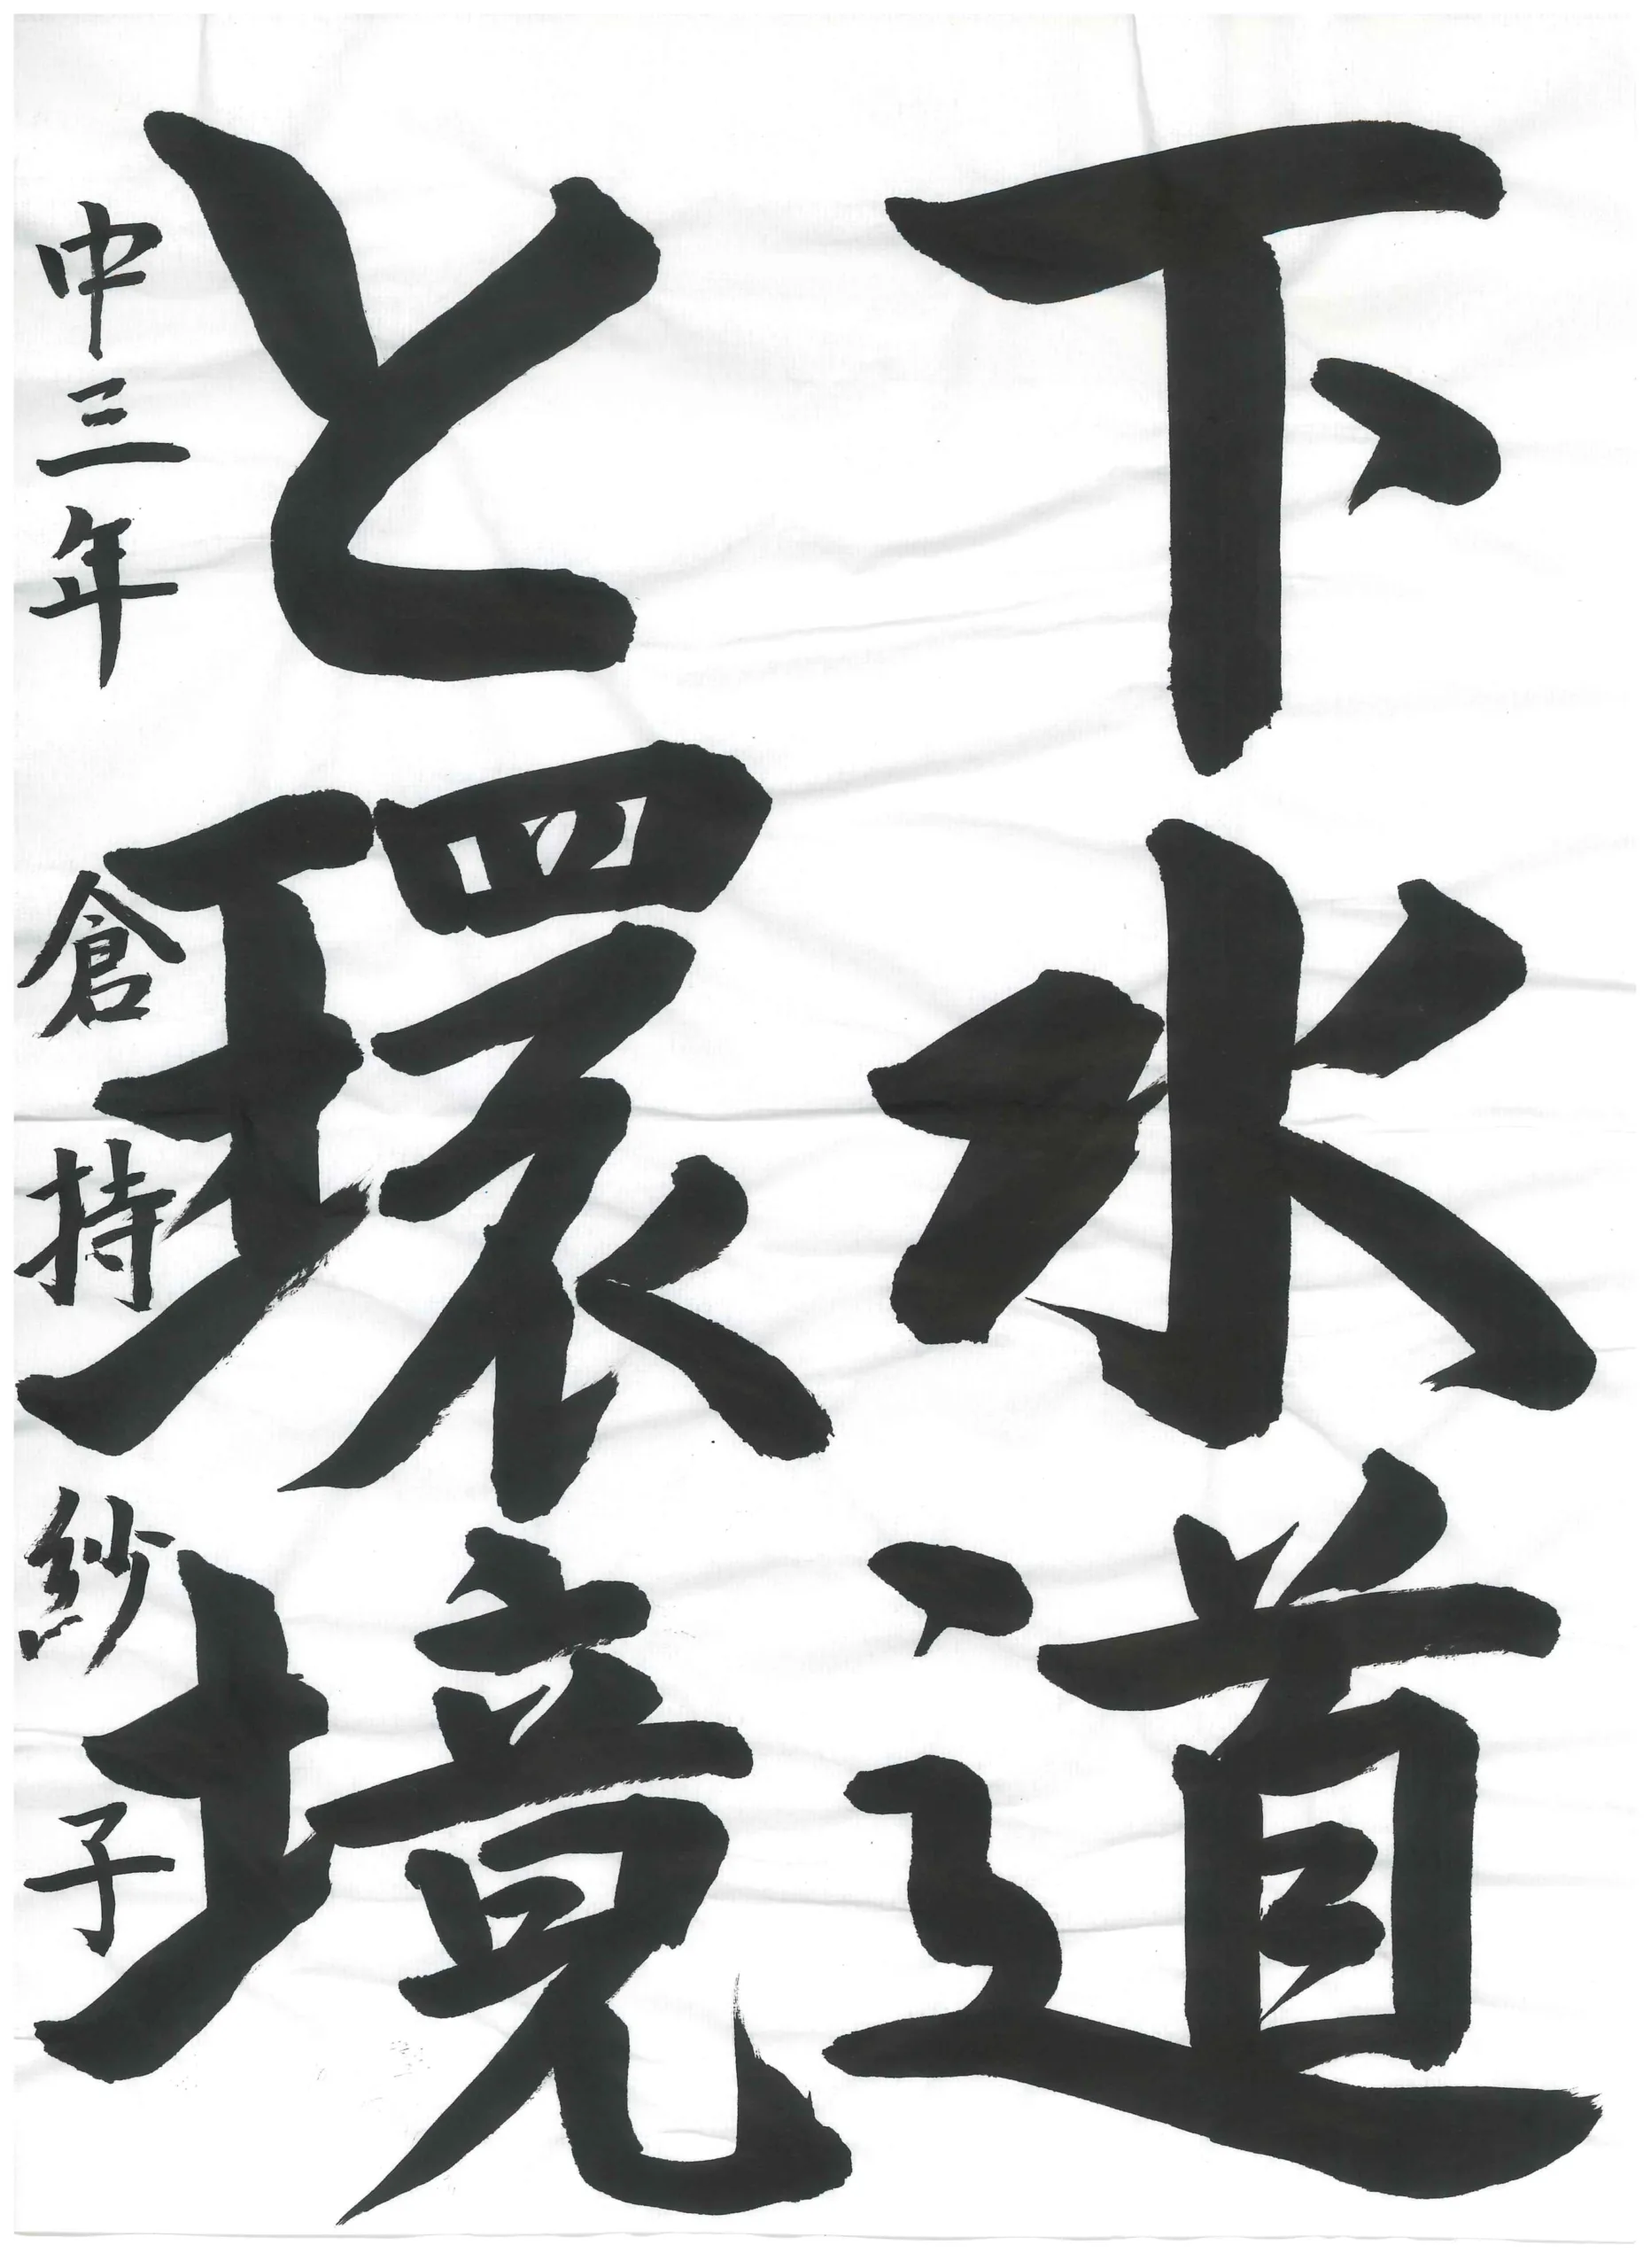 下水道
と環境
中三年 倉持紗子